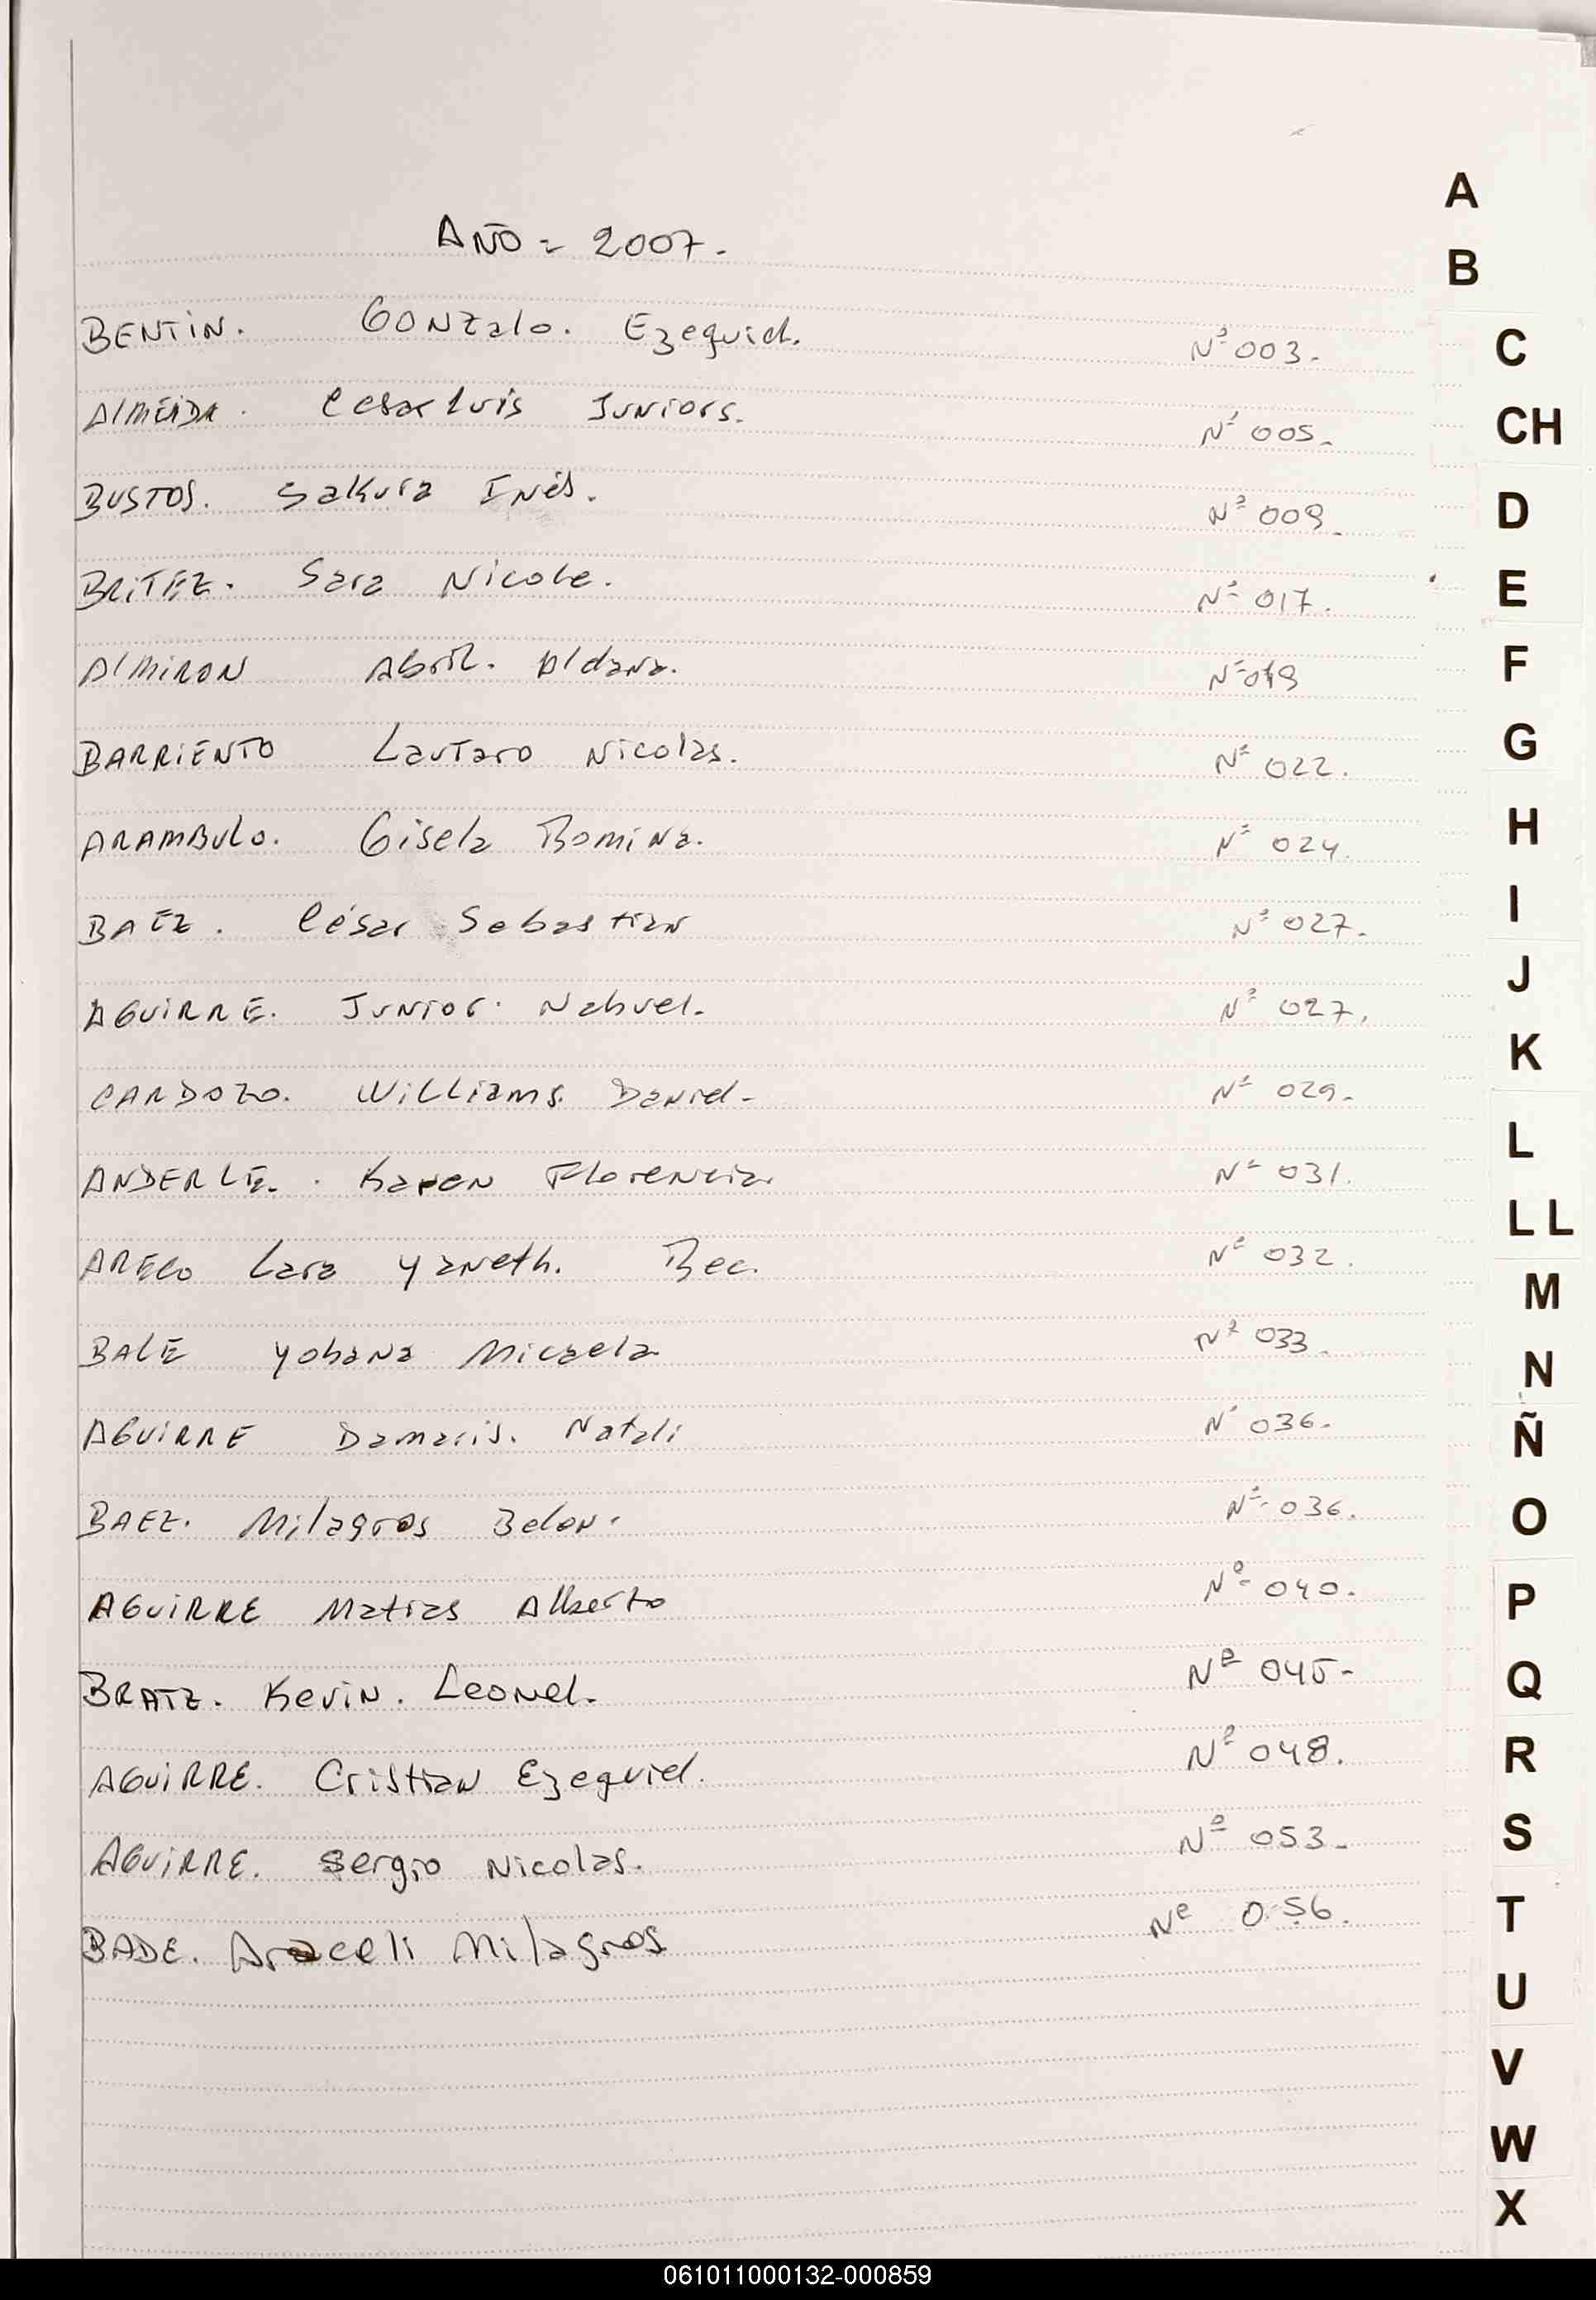 AÑO = 2007.
BENTIN. GONZalo. Ezequiel. Nº 003.
ALMEIDA. Cesar Luis Juniors. Nº 005.
BUSTOS. Sakura Inés. Nº 009.
BRITEZ. Sara Nicole. Nº 017.
ALMIRON Abril. Aldana. Nº 019
BARRIENTO Lautaro Nicolas. Nº 022.
ARAMBULO. Gisela Romina. Nº 024.
BAEZ. César Sebastian Nº 027.
AGUIRRE. Junior. Nahuel. Nº 027.
CARDOZO. Williams. Daniel. Nº 029.
ANDERLE. Karen Florencia. Nº 031.
ARECO Lara Yaneth. Rec. Nº 032.
BALE Yohana Micaela Nº 033.
AGUIRRE Damaris. Natali Nº 036.
BAEZ. Milagros Belen. Nº 036.
AGUIRRE Matias Alberto Nº 040.
BRATZ. Kevin. Leonel. Nº 045-
AGUIRRE. Cristian Ezequiel. Nº 048.
AGUIRRE. Sergio Nicolas. Nº 053.
BADE. Araceli Milagros Nº 056.
A
B
C
CH
D
E
F
G
H
I
J
K
L
LL
M
N
Ñ
O
P
Q
R
S
T
U
V
W
X
061011000132-000859